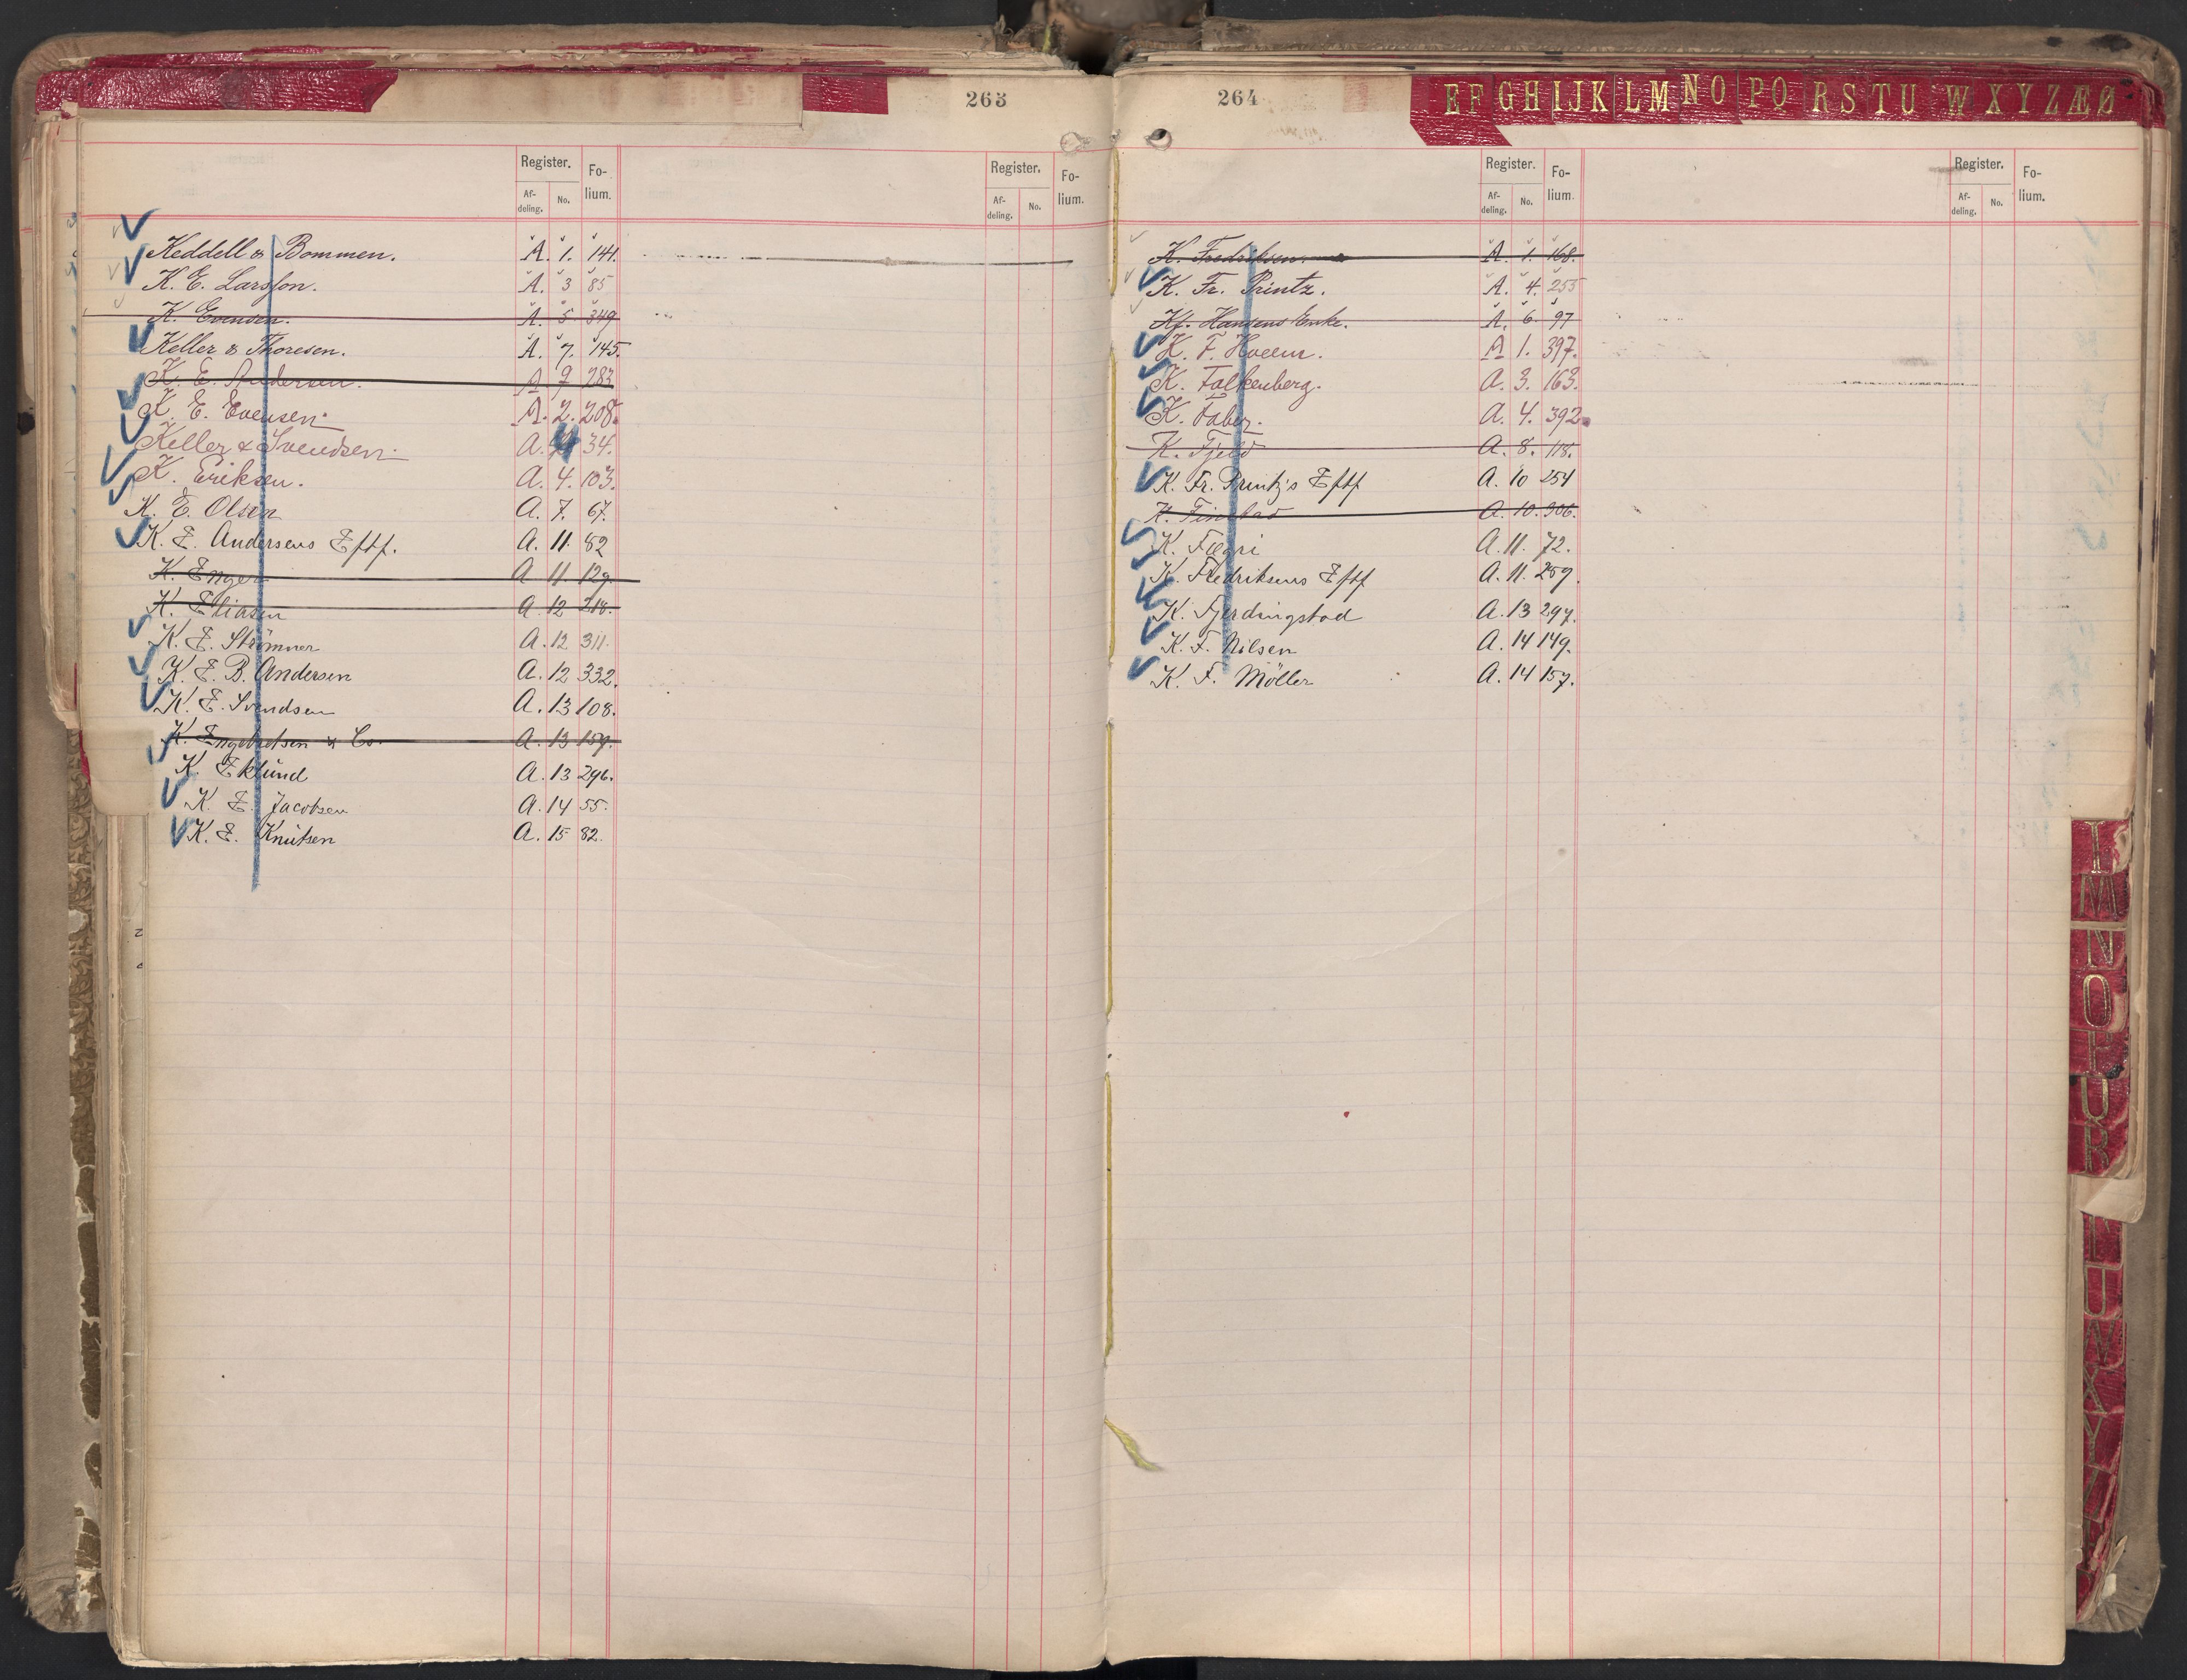 263
Register. Fo-
lium.
Af-
deling. No.
Register. Fo-
lium.
Af-
deling. No.
Keddell & Bommen. A. 1. 141.
K. E. Larsson. A. 3 85
K. Evensen. A. 5. 349
Keller & Thoresen. A. 7. 145.
K. E. Andersen. A. 9 283
K. E. Evensen. A. 2. 208.
Keller & Svendsen. A. 4 34.
K. Eriksen. A. 4. 103.
K. E. Olsen A. 7. 67.
K. E. Andersens Eftf. A. 11. 82
K. Enger A. 11. 129.
K. Eliasen A. 12 218.
K. E. Strömner A. 12. 311.
K. E. B. Andersen A. 12 332.
K. E. Svendsen A. 13 108.
K. Engebretsen & Co. A. 13 159.
K. Eklund A. 13 296.
K. E. Jacobsen A. 14 55.
K. E. Knutsen A. 15 82.
264
E F G H I J K L M N O P Q R S T U W X Y Z Æ Ø
Register. Fo-
lium.
Af-
deling. No.
Register. Fo-
lium.
Af-
deling. No.
K. Fredriksen. A. 1. 168.
K. Fr. Printz. A. 4. 255
Kf. Hansens Enke. A. 6. 97
K. F. Hoem. A 1. 397.
K. Falkenberg. A. 3. 163.
K. Faber. A. 4. 392.
K. Fjeld A. 8. 118.
K. Fr. Printz's Eftf A. 10 254
K. Finstad A. 10. 306.
K. Fægri A. 11. 72.
K. Fredriksens Eftf A. 11. 259.
K. Fjerdingstad A. 13 297.
K. F. Nilsen A. 14 149.
K. F. Möller A. 14 157.
M
N
O
P
R
U
W
X
Y